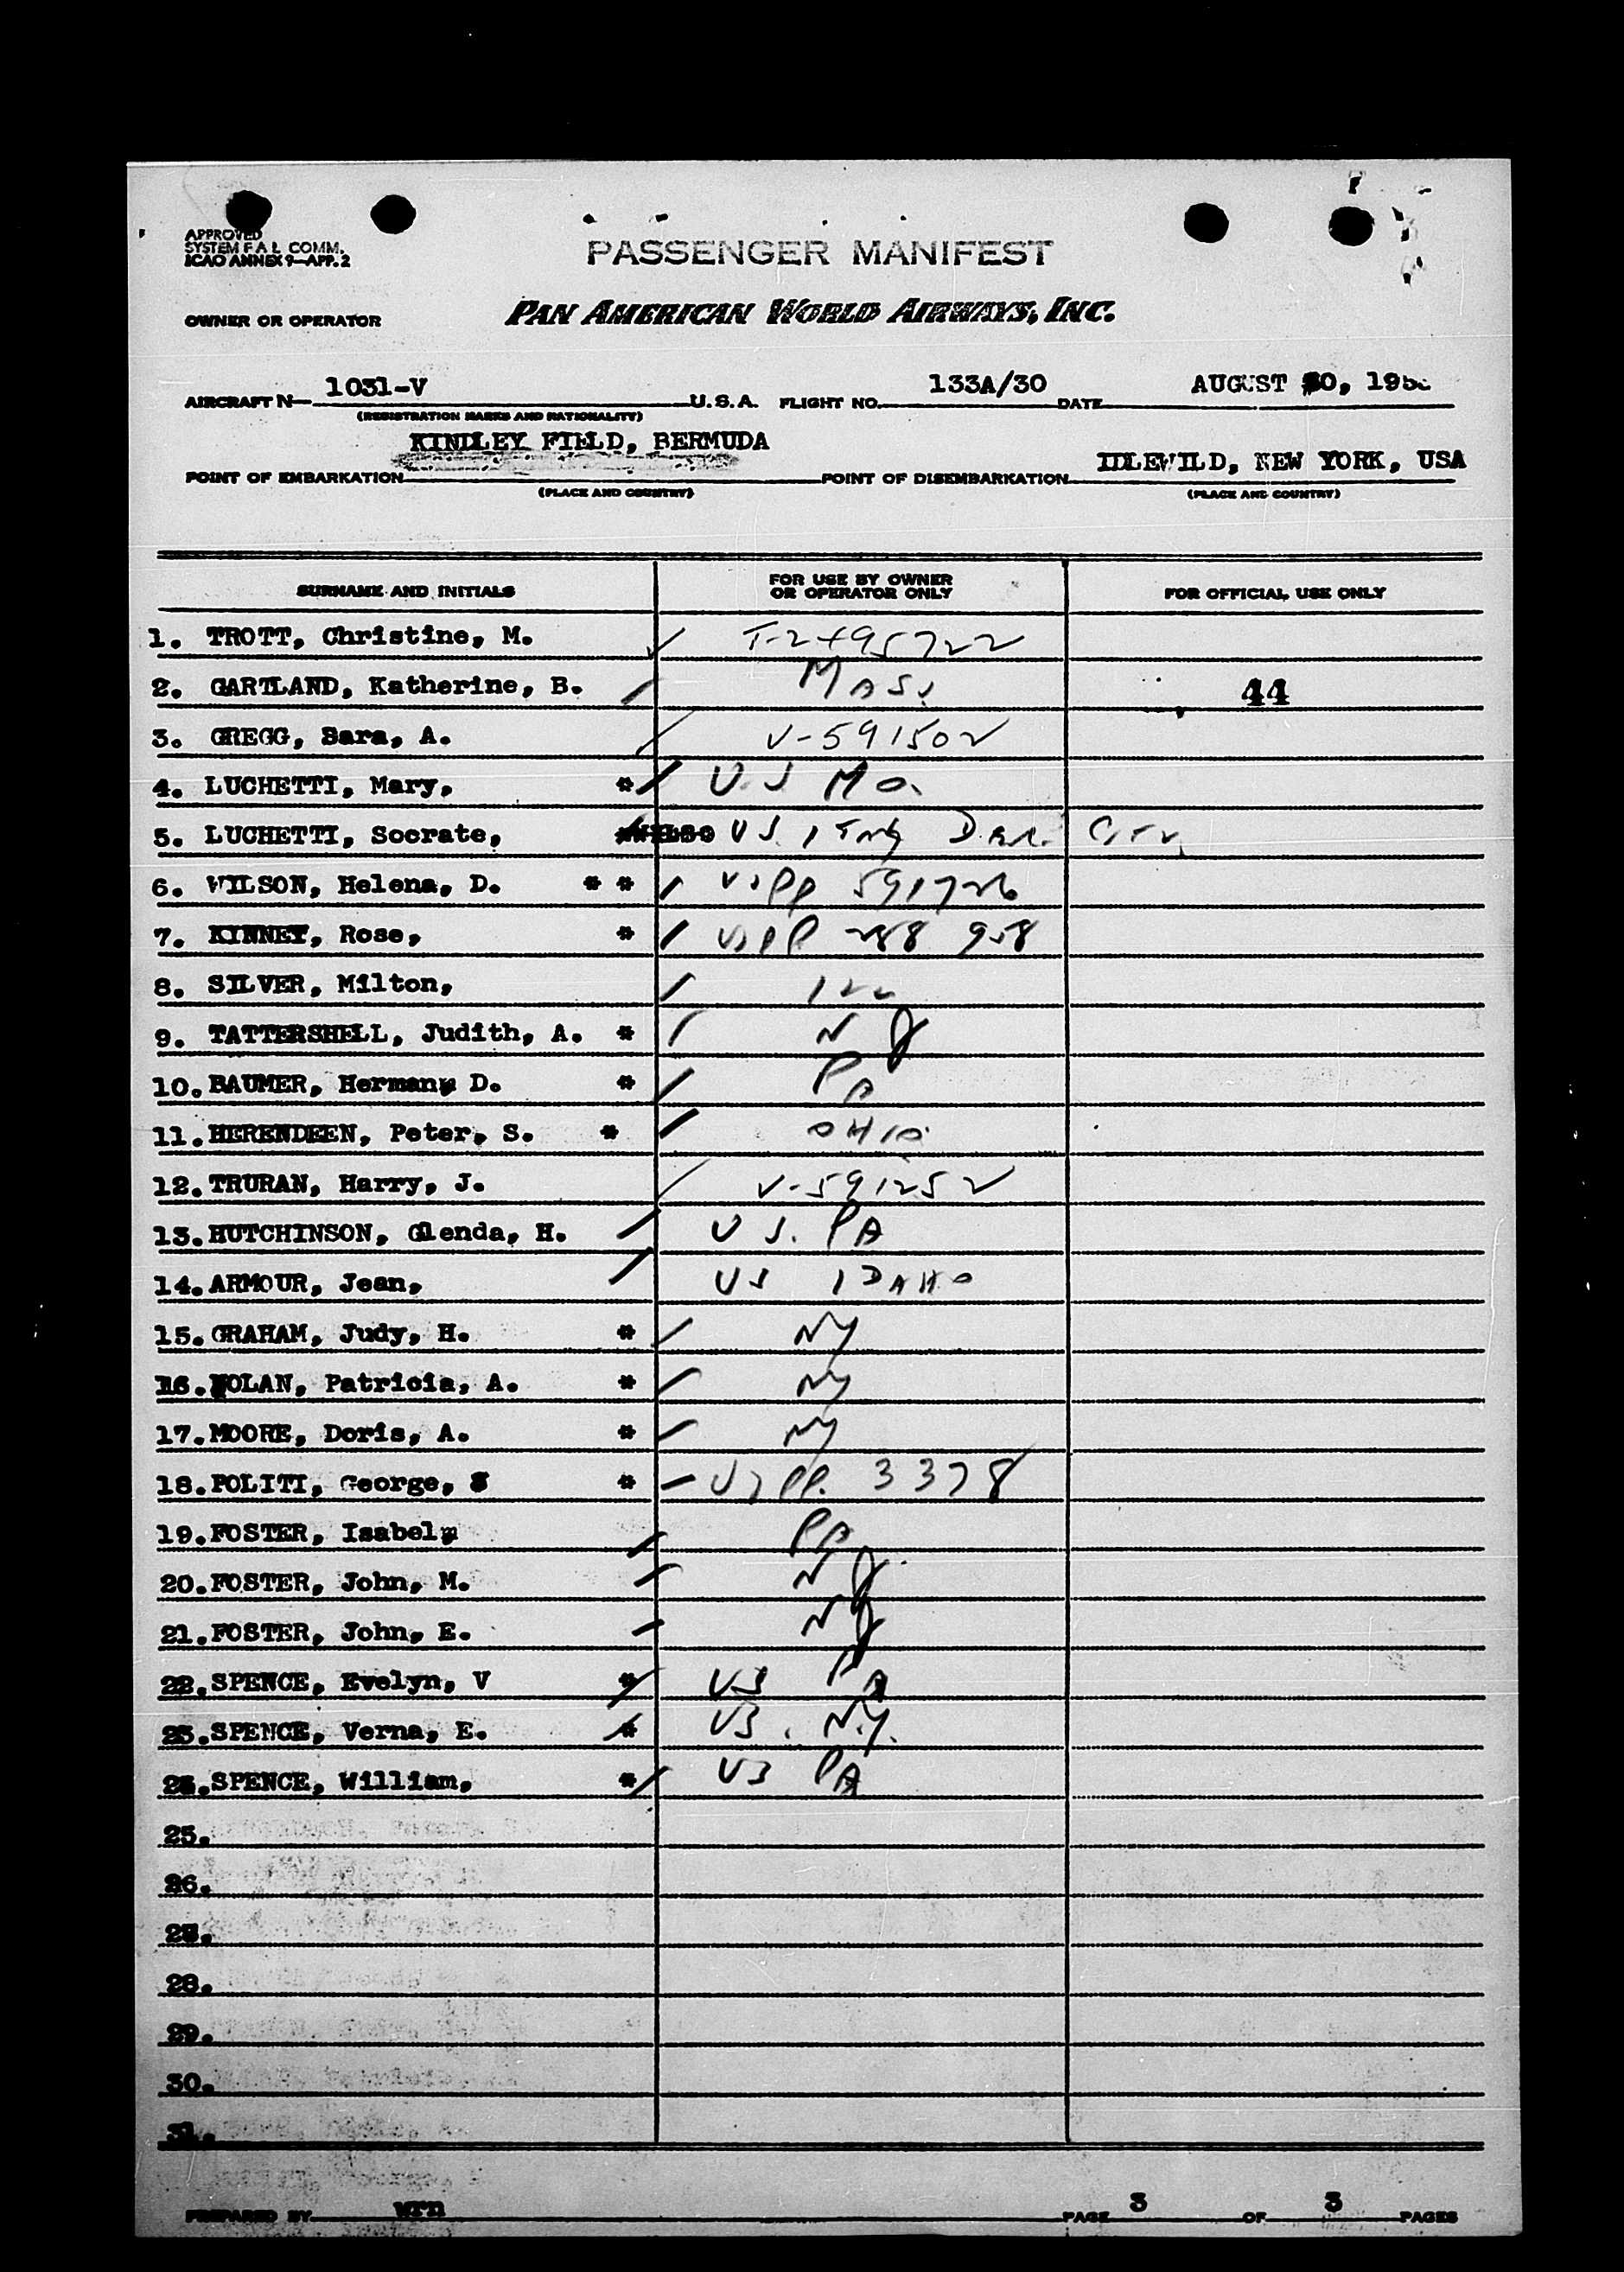 APPROVED
SYSTEM F A L COMM.
ICAO ANNEX 9-APP. 2
PASSENGER MANIFEST
OWNER OR OPERATOR PAN AMERICAN WORLD AIRWAYS, INC.
AIRCRAFT N- 1031-V U.S.A. FLIGHT NO. 133A/30 DATE AUGUST 30,
(REGISTRATION MARKS AND NATIONALITY)
KINDLEY FIELD, BERMUDA
POINT OF EMBARKATION POINT OF DISEMBARKATION IDLEWILD, NEW YORK, USA
(PLACE AND COUNTRY) (PLACE AND COUNTRY)
SURNAME AND INITIALS FOR USE BY OWNER OR OPERATOR ONLY FOR OFFICIAL USE ONLY
1. TROTT, Christine, M.
2. GARTLAND, Katherine, B. MASS. 44
3. GREGG, Sara, A. V-591502
4. LUCHETTI, Mary, * US MO.
5. LUCHETTI, Socrate, US
6. WILSON, Helena, D. * * USPP 591726
7. KINNEY, Rose, * USPP 288 958
8. SILVER, Milton, 122
9. TATTERSHELL, Judith, A. * NJ
10. BAUMER, Herman, D. * PA
11. HERENDEEN, Peter, S. * OHIO
12. TRURAN, Harry, J. V-591252
13. HUTCHINSON, Glenda, H. US. PA
14. ARMOUR, Jean, US IDAHO
15. GRAHAM, Judy, H. * NY
16. NOLAN, Patricia, A. * NY
17. MOORE, Doris, A. * NY
18. POLITI, George, S * USPP. 3378
19. FOSTER, Isabel, PA
20. FOSTER, John, M. NJ
21. FOSTER, John, E. NJ
22. SPENCE, Evelyn, V * US PA
23. SPENCE, Verna, E. * US. N.Y.
24. SPENCE, William, * US PA
25.
26.
27.
28.
29.
30.
31.
PREPARED BY wrn PAGE 3 OF 3 PAGES